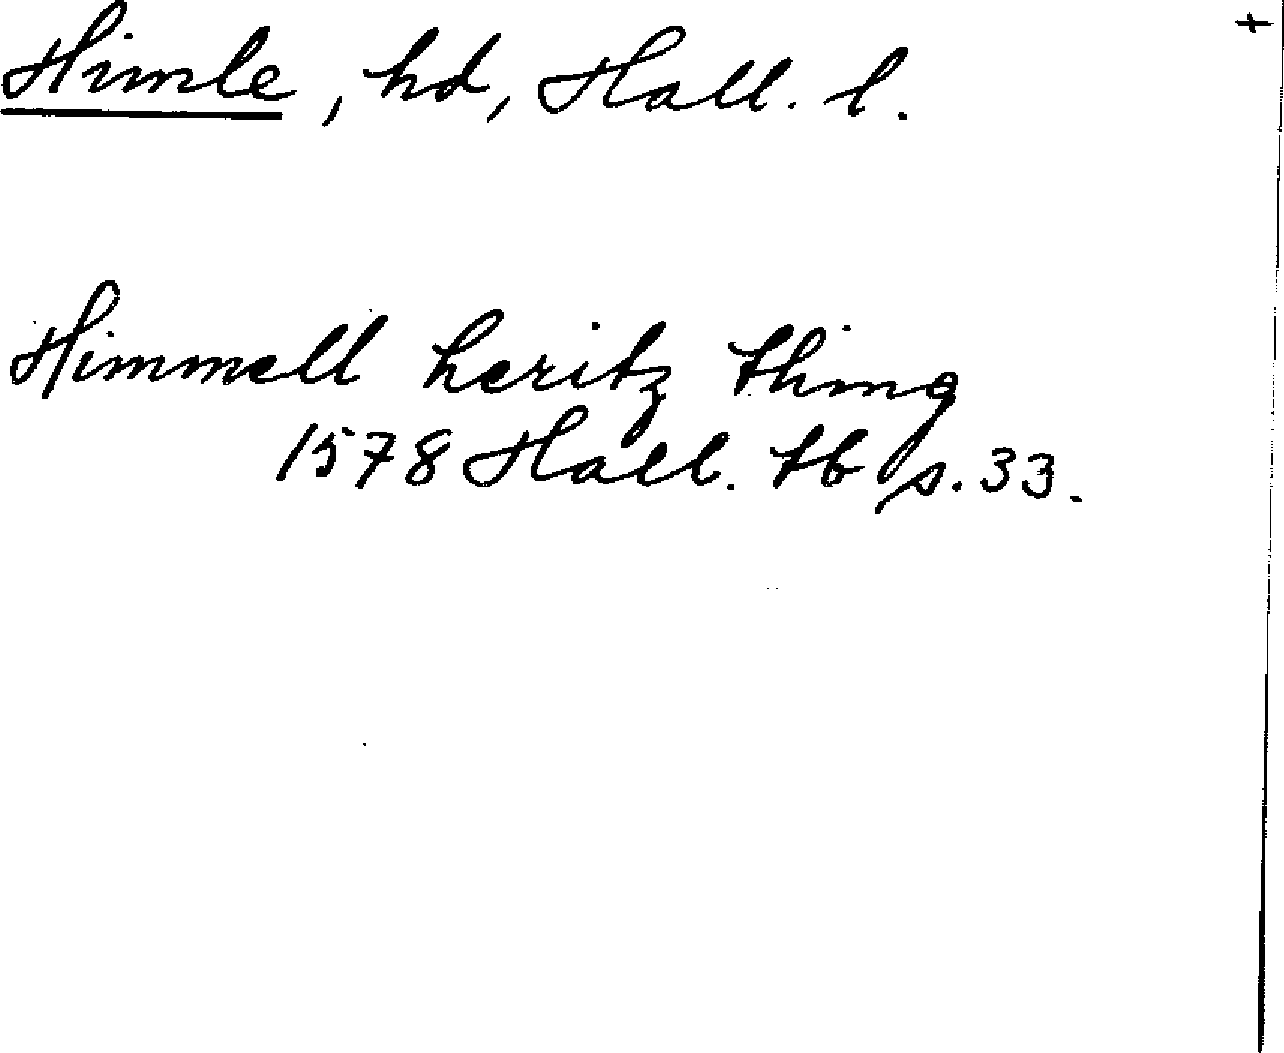 Himle, hd, Hall. l.
Himmell heritz thing
1578 Hall. tb s. 33.